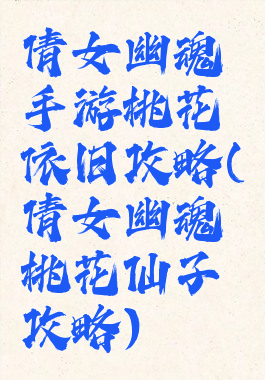 倩女幽魂
手游桃花
依旧攻略(
倩女幽魂
桃花仙子
攻略)